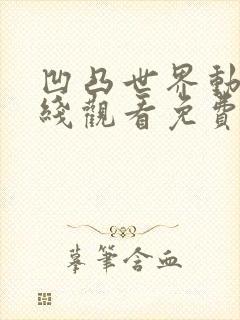 凹凸世界動
綫觀看免費
摹筆含血